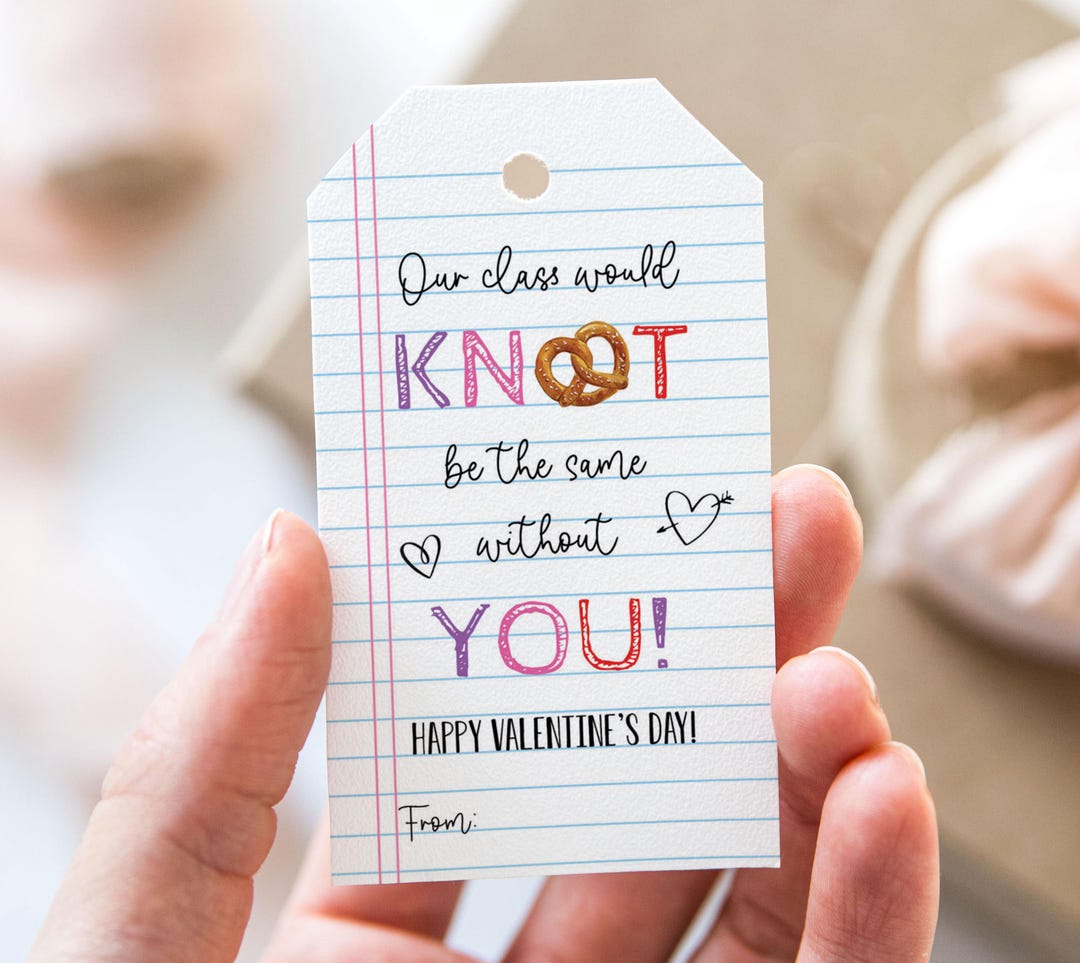 Our class would
KNOT
be the same
without
YOU!
HAPPY VALENTINE'S DAY!
From: